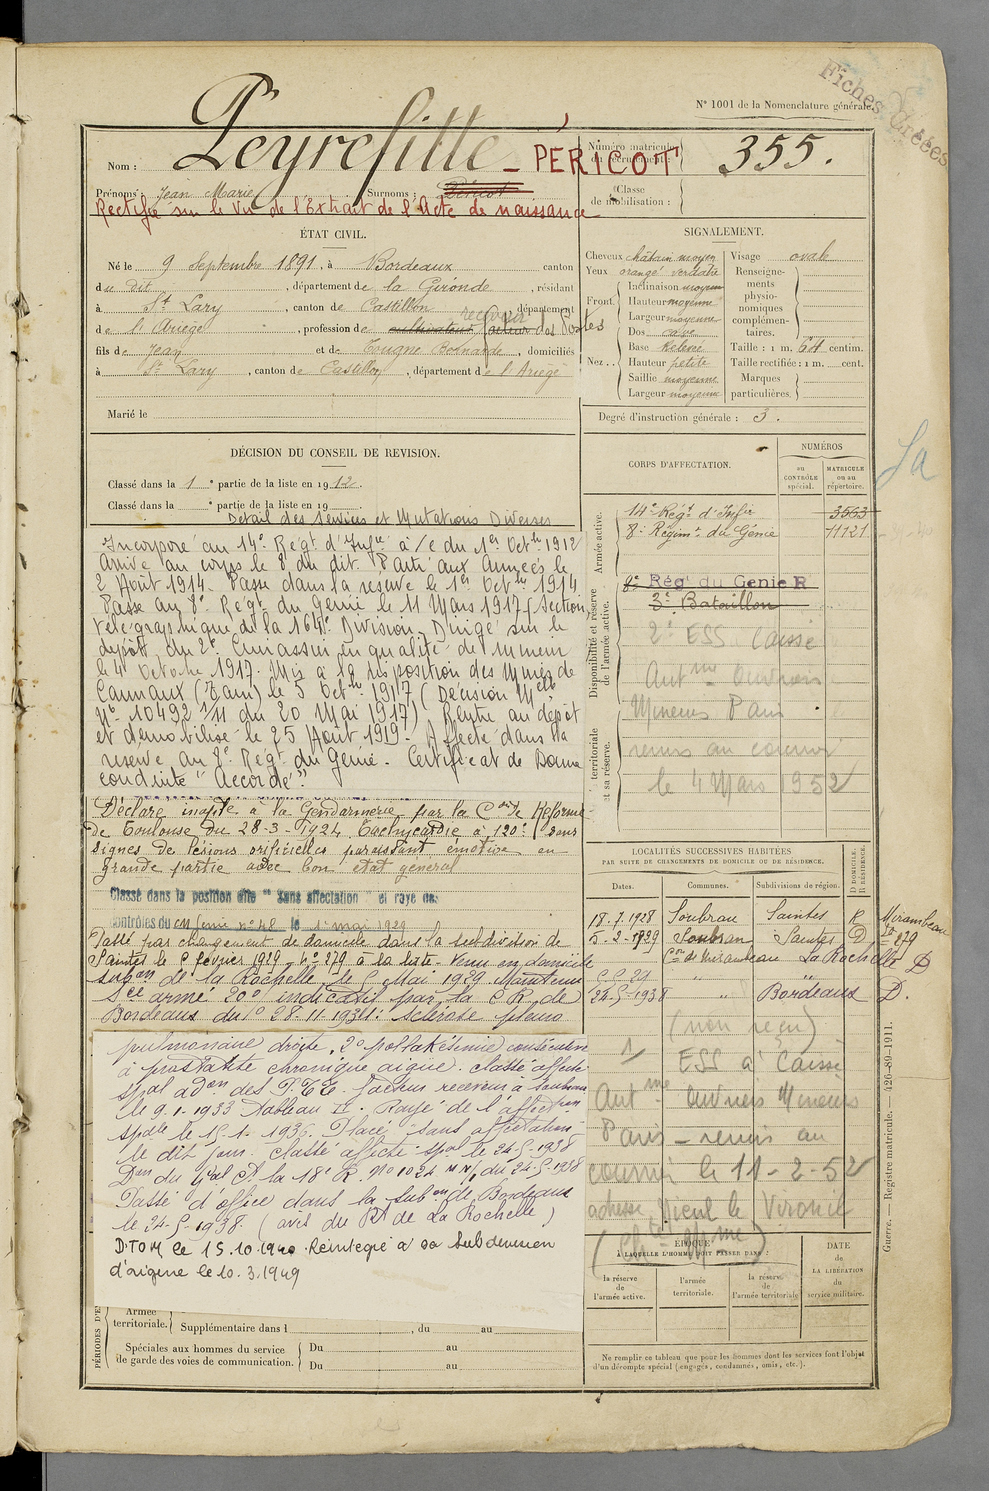 Fiches Créées
N° 1001 de la Nomenclature générale.
Nom : Peyrefitte - PÉRICOT
Numéro matricule du recrutement : 355.
Prénoms : Jean Marie Surnoms : Péricot
Classe de mobilisation :
Rectifié sur le Vu de l'Extrait de l'Acte de naissance
ÉTAT CIVIL.
Né le 9 Septembre 1891, à Bordeaux canton
du dit, département de la Gironde, résidant
à St Lary, canton de Castillon, département
receveur
de l'Ariège, profession de cultivateur facteur des Postes
fils de Jean et de Tougne Bernarde, domiciliés
à St Lary, canton de Castillon, département de l'Ariège
Marié le
SIGNALEMENT.
Cheveux châtain moyen
Yeux orangé verdâtre
Front. Inclinaison moyen
Hauteur moyenne
Largeur moyenne
Nez. Dos cave
Base Relevée
Hauteur petite
Saillie moyenne
Largeur moyenne
Visage ovale
Renseignements physionomiques complémentaires.
Taille : 1 m. 64 centim.
Taille rectifiée : 1 m. cent.
Marques particulières.
Degré d'instruction générale : 3.
DÉCISION DU CONSEIL DE REVISION.
Classé dans la 1e partie de la liste en 1912.
Classé dans la e partie de la liste en 19
Détail des Services et Mutations Diverses
Incorporé au 14e Régt d'Infie à/c du 1er Octbre 1912
Arrivé au corps le 8 du dit. Parti aux Armées le
2 Août 1914. Passé dans la réserve le 1er Octbre 1914
Passé au 8e Régt du Génie le 11 Mars 1917 (Section
Télégraphique de la 164e Division. Dirigé sur le
dépôt du 2e Cuirassier en qualité de mineur
le 4 Octobre 1917. Mis à la disposition des Mines de
Carmaux (Tarn) le 5 Octbre 1917 (Décision Melle
No 10492 1/11 du 20 Mai 1917). Rentré au dépôt
et démobilisé le 25 Août 1919. Affecté dans la
réserve au 8e Régt du Génie. Certificat de Bonne
conduite "Accordé".
Déclaré inapte à la Gendarmerie par la Con de Réforme
de Toulouse du 28-3-1924 Tachycardie à 120 sans
signes de lésions orificielles paraissant émotive en
grande partie avec bon état général
Classé dans la position dite "sans affectation" et rayé des
contrôles du Cm Génie no 48 le 1er mai 1929
Passé par changement de domicile dans la subdivision de
Saintes le 5 février 1929 - no 279 à la liste. Venu en domicile
subon de la Rochelle le 5 Mai 1929 Maintenu
Sce armé 20% indicatif par la C.R. de
Bordeaux du 28-11-1934: sclérose pleuro
pulmonaire droite. 2° pollakisurie consécutive
à prostatite chronique aigue. Classé affecté
spal adon des P.T.T. facteur receveur à Soubran
le 9-1-1933 Tableau II. Rayé de l'affection
spale le 15-1-1936. Placé "sans affectation"
le dit jour. Classé affecté spal le 24-5-1938
Don du Gal Ct la 18e R. No 1024 du 24-5-1938
Passé d'office dans la subon de Bordeaux
le 24-5-1938. (avis du Rt de La Rochelle)
DTOM le 15.10.1940 Réintégré à sa Subdivision
d'origine le 10.3.1949
Armée territoriale. Supplémentaire dans l , du au
Spéciales aux hommes du service de garde des voies de communication. Du au
Du au
CORPS D'AFFECTATION.
NUMÉROS
au CONTRÔLE spécial.
MATRICULE ou au répertoire.
Armée active.
14e Régt d'Infie 3563
8e Régimt du Génie 11121
Disponibilité et réserve de l'armée active.
8e Rég' du Génie R
3e Bataillon
2e ESS Caisse
Autme Ouvriers
Mineurs Paris
remis au courrier
le 4 Mars 1952
territoriale et sa réserve.
Sa
LOCALITÉS SUCCESSIVES HABITÉES
PAR SUITE DE CHANGEMENTS DE DOMICILE OU DE RÉSIDENCE.
Dates. Communes. Subdivisions de région. D DOMICILE. R RÉSIDENCE.
18.7.1928 Soubran Saintes R Mirambeau
5-2-1929 Soubran Saintes D no 279
Con de Mirambeau La Rochelle D
5.5.29 " "
24-5-1938 " Bordeaux D.
(non reçu)
1/ ESS à Caisse
Autme Ouvriers Mineurs
Paris - remis au
courrier le 11-2-52
adresse
ÉPOQUE
À LAQUELLE L'HOMME DOIT PASSER DANS :
la réserve de l'armée active.
l'armée territoriale.
la réserve de l'armée territoriale
DATE de LA LIBÉRATION du service militaire.
Ne remplir ce tableau que pour les hommes dont les services font l'objet
d'un décompte spécial (engagés, condamnés, omis, etc.).
Guerre. — Registre matricule. — 426-89-1911.